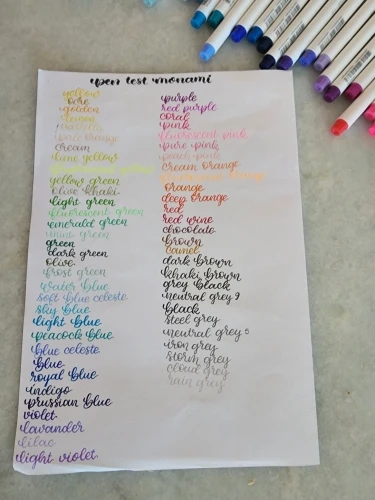 pen test monami
yellow
ocre
golden
lemon
pale orange
cream
lime yellow
yellow green
olive khaki
light green
fluorescent green
emerald green
mint green
green
dark green
olive
frost green
water blue
soft blue celeste
sky blue
light blue
peacock blue
blue celeste
blue
royal blue
indigo
prussian blue
violet
lavander
lilac
light violet
purple
red purple
coral
pink
fluorescent pink
pure pink
peach pink
cream orange
fluorescent orange
orange
deep orange
red
red wine
chocolate
brown
camel
dark brown
khaki brown
grey black
neutral grey 9
black
steel grey
neutral grey 5
iron grey
storm grey
cloud grey
rain grey